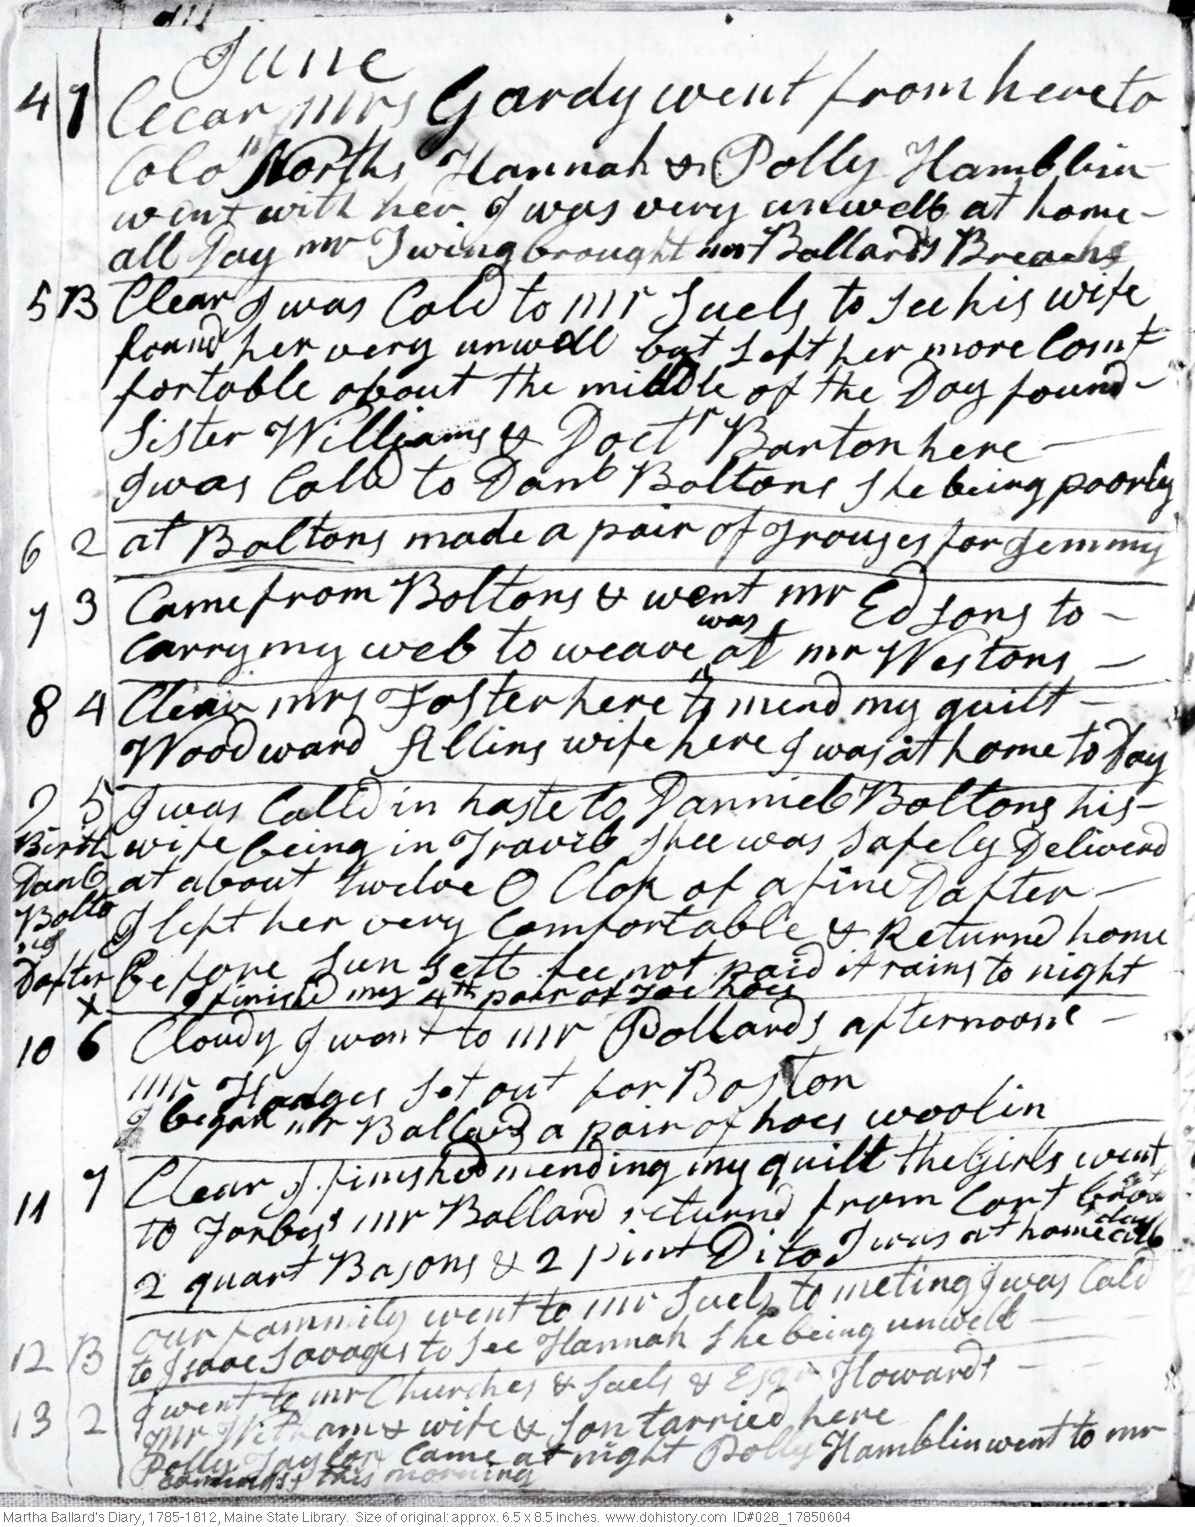 June
4 7 Clear mrs Gardy went from here to
Colo" Norths Hannah & Polly Hamblin
went with her. I was very unwell at home -
all Day mr Twing brought mr Ballards Breachs
5 B Clear I was Calld to mr Suels to See his wife
found her very unwell but left her more Com
fortable about the middle of the Day found -
Sister Williams & Doctr Barton here
I was Calld to Danl Boltons She being poorly
6 2 at Boltons made a pair of Trouses for Jemmy
7 3 Came from Boltons & went mr Edsons to -
was
Carry my web to weave at mr Westons -
8 4 Clear mrs Foster here to mend my quilt -
Woodward Allins wife here I was at home to Day
9 5 I was Calld in haste to Danniel Boltons his -
Birth wife being in Travil Shee was Safely Deliverd
Danl at about twelve O Clok of a fine Dafter -
Bolto I left her very Comfortable & Returnd home
ns
Dafter before Sun Sett. fee not paid it rains to night
X I finishd my 4th pair of hoes
10 6 Cloudy I went to mr Pollards afternoone -
mr Hodges Set out for Boston
I began mr Ballard a pair of hoes woolin
11 7 Clear I finished mending my quilt the Girls went
to Forbess mr Ballard returnd from Cort brot
2 quart Basons & 2 pint Dito I was at home all
day
our fammily went to mr Suels to meting I was Calld
12 B to Isaac Savages to See Hannah She being unwell -
I went to mr Churches & Suels & Esqr Howards -
13 2 mr Witham & wife & Son tarried here
Polly Taylor came at night Polly Hamblin went to mr
this morning
Martha Ballard's Diary, 1785-1812, Maine State Library. Size of original: approx. 6.5 x 8.5 inches. www.dohistory.com ID#028_17850604